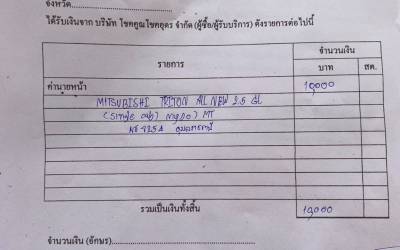 จังหวัด
ได้รับเงินจาก บริษัท โชคคูณโชคอุดร จำกัด (ผู้ซื้อ/ผู้รับบริการ) ดังรายการต่อไปนี้
รายการ จำนวนเงิน
บาท สต.
ค่านายหน้า 10,000
MITSUBISHI TRITON ALL NEW 2.5 GL
(Single cab) MT
อุบลราชธานี
รวมเป็นเงินทั้งสิ้น 10,000
จำนวนเงิน (อักษร)